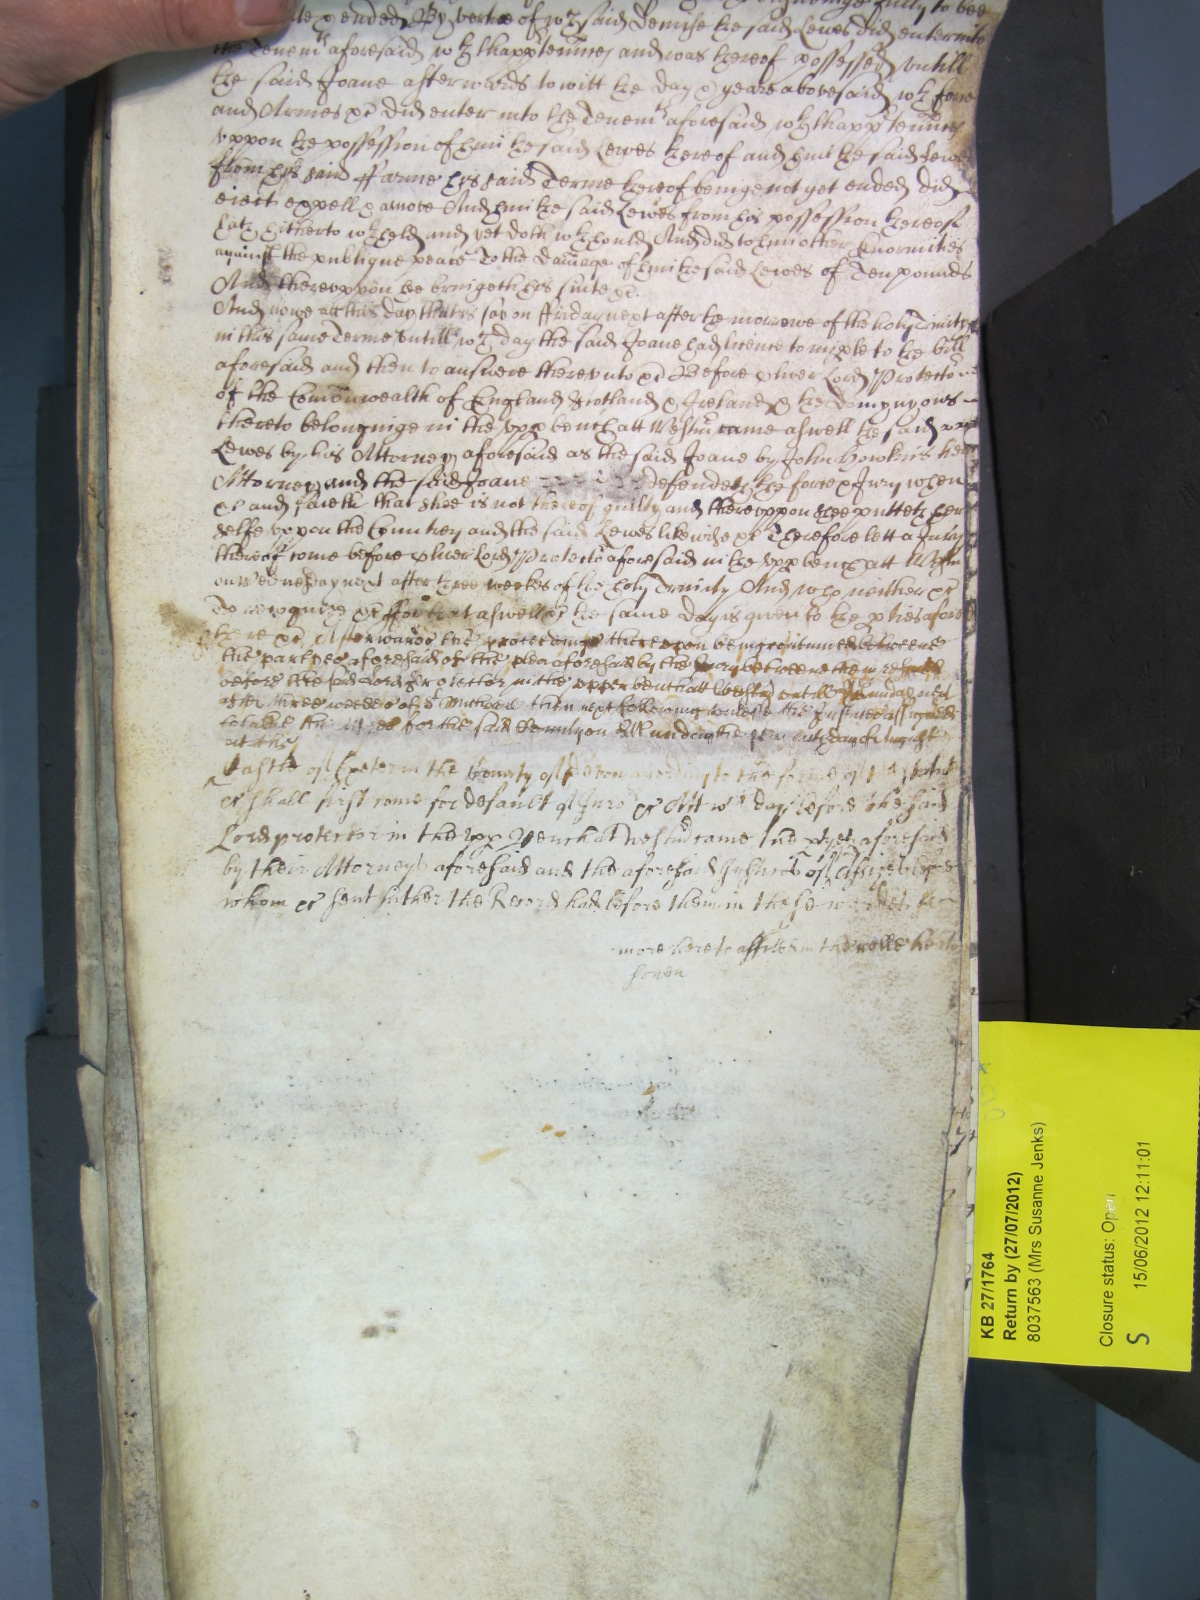 fully to bee
ended By vertue of wch said Demise the said Lewes did enter into
the Tenemts aforesaid wth thappurtennces and was thereof possessed untill
the said Joane afterwards to witt the day & yeare abovesaid wth force
and Armes &c did enter into the Tenemts aforesaid wth thappurtennces
uppon the possession of him the said Lewes thereof and him the said Lewes
from his said ffarme his said Terme thereof beinge not yet ended did
eiect expell & amove And him the said Lewes from his possession thereof
hath hitherto wthheld and yet doth wthhould And did to him other Enormities
against the publique peace To the damage of him the said Lewes of Ten pounds
And thereuppon he bringeth his suite &c.
And nowe att this day that is to say on ffriday next after the morrowe of the holy Trinity
in this same Terme untill wch day the said Joane had licence to imple to the bill
aforesaid and then to answere thereunto &c Before Oliver Lord Protector
of the Comonwealth of England Scotland & Ireland & the Domynyons
thereto belonginge in the upp bench att Westm came aswell the said
Lewes by his Attorney aforesaid as the said Joane by John Howkins her
Attorney and the said Joane defendeth the force & Iniury when
&c and saieth that shee is not thereof guilty and thereuppon shee putteth her
selfe uppon the Countrey and the said Lewes likewise &c Therefore lett a Jury
thereof come before Oliver Lord Protector aforesaid in the upp bench att Westm
on Wednesday next after three weekes of the holy Trinity And who neither &c
To recognize &c ffor that aswell &c the same day is given to the pties aforesd
there &c Afterwards the process thereupon being continued betweene
the parties aforesaid of the plea aforesaid by the Jury betweene them
before the said Lord Protector in the upper bench att Westm untill
after three weekes of St Michael then next following unlesse the Justices assigned
to take the Assizes for the said County on
att the
Castle of Exeter in the County of Devon according to the forme of the statute
&c shall first come for default of Juro &c Att wch day before the said
Lord protector in the upp Bench at Westm came the pties aforesaid
by their Attorneys aforesaid and the aforesaid Justices of Assize before
whom &c sent hither the Record had before them in these words
more hereto affiled in the rolle
KB 27/1764
Return by (27/07/2012)
8037563 (Mrs Susanne Jenks)
Closure status: Open
S 15/06/2012 12:11:01